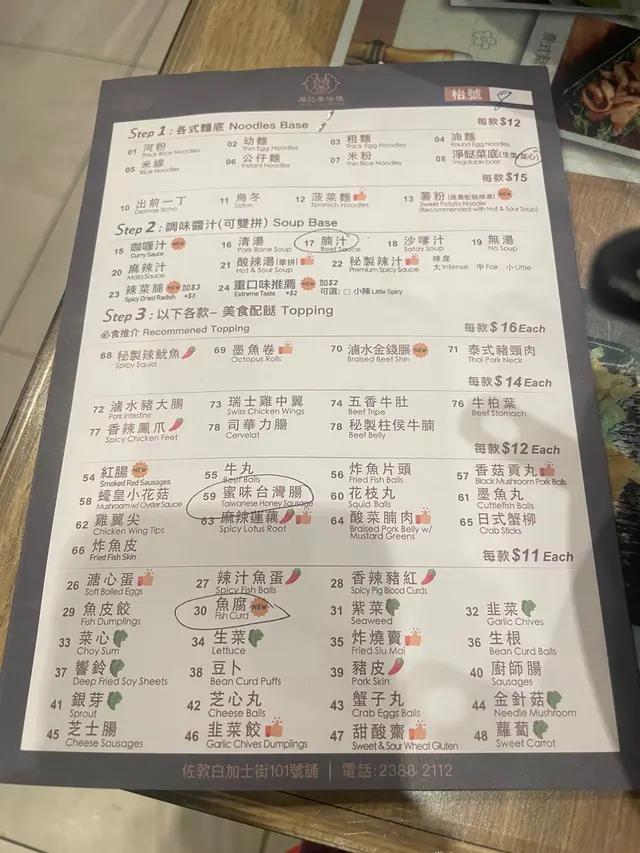 枱號 8
Step 1 : 各式麵底 Noodles Base 每款$12
01 河粉 Thick Rice Noodles 02 幼麵 Thin Egg Noodles 03 粗麵 Thick Egg Noodles 04 油麵 Round Egg Noodles
05 米線 Rice Noodles 06 公仔麵 Instant Noodles 07 米粉 Thin Rice Noodles 08 淨餸菜底(生菜/菜心) Vegetable base
每款$15
10 出前一丁 Demae Itcho 11 烏冬 Udon 12 菠菜麵 Spanich Noodles 13 薯粉(推薦配酸辣湯) NEW Sweet Potato Noodle (Recommended with Hot & Sour Soup)
Step 2 : 調味醬汁(可雙拼) Soup Base
15 咖喱汁 NEW Curry Sauce 16 清湯 Pork Bone Soup 17 腩汁 Beef Sauce 18 沙嗲汁 Satay Sauce 19 無湯 No Soup
20 麻辣汁 Mala Sauce 21 酸辣湯(單拼) Hot & Sour Soup 22 秘製辣汁 Premium Spicy Sauce 辣度 大 Intense 中 Fair 小 Little
23 辣菜脯 NEW 加$3 Spicy Dried Radish +$3 24 重口味推薦 NEW 加$2 Extreme Taste +$2 可選: □ 小辣 Little Spicy
Step 3 : 以下各款– 美食配餸 Topping
必食推介 Recommened Topping 每款 $16 Each
68 秘製辣魷魚 Spicy Squid 69 墨魚卷 Octopus Rolls 70 滷水金錢𦟌 NEW Braised Beef Shin 71 泰式豬頸肉 Thai Pork Neck
每款 $14 Each
72 滷水豬大腸 Pork Intestine 73 瑞士雞中翼 Swiss Chicken Wings 74 五香牛肚 Beef Tripe 76 牛柏葉 Beef Stomach
77 香辣鳳爪 Spicy Chicken Feet 78 司華力腸 Cervelat 78 秘製柱侯牛腩 Beef Belly
每款 $12 Each
54 紅腸 NEW Smoked Red Sausages 55 牛丸 Beef Balls 56 炸魚片頭 Fried Fish Balls 57 香菇貢丸 Black Mushroom Pork Balls
58 蠔皇小花菇 Mushroom w/ Oyster Sauce 59 蜜味台灣腸 Taiwanese Honey Sausage 60 花枝丸 Squid Balls 61 墨魚丸 Cuttlefish Balls
62 雞翼尖 Chicken Wing Tips 63 麻辣蓮藕 Spicy Lotus Root 64 酸菜腩肉 Braised Pork Belly w/ Mustard Greens 65 日式蟹柳 Crab Sticks
66 炸魚皮 Fried Fish Skin
每款 $11 Each
26 溏心蛋 Soft Boiled Eggs 27 辣汁魚蛋 Spicy Fish Balls 28 香辣豬紅 Spicy Pig Blood Curds
29 魚皮餃 Fish Dumplings 30 魚腐 NEW Fish Curd 31 紫菜 Seaweed 32 韭菜 Garlic Chives
33 菜心 Choy Sum 34 生菜 Lettuce 35 炸燒賣 Fried Siu Mai 36 生根 Bean Curd Balls
37 響鈴 Deep Fried Soy Sheets 38 豆卜 Bean Curd Puffs 39 豬皮 Pork Skin 40 廚師腸 Sausages
41 銀芽 Sprout 42 芝心丸 Cheese Balls 43 蟹子丸 Crab Eggs Balls 44 金針菇 Needle Mushroom
45 芝士腸 Cheese Sausages 46 韭菜餃 Garlic Chives Dumplings 47 甜酸齋 Sweet & Sour Wheat Gluten 48 蘿蔔 Sweet Carrot
佐敦白加士街101號舖 | 電話:2388 2112